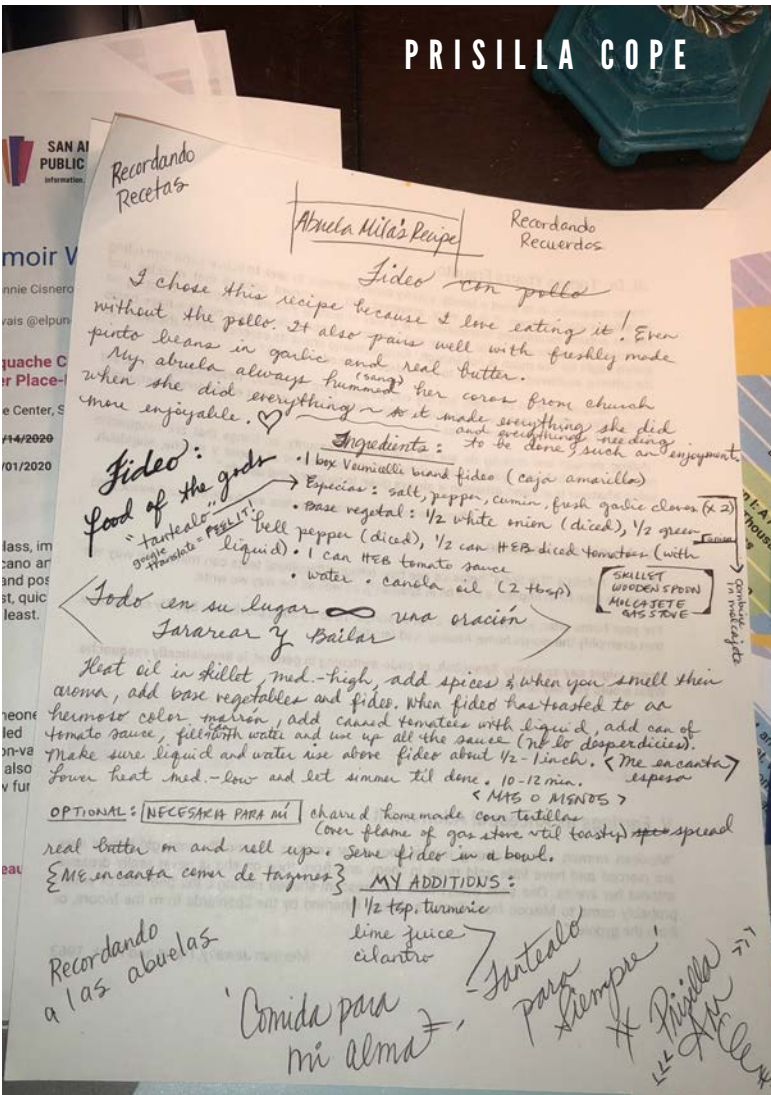 PRISILLA COPE
SAN A
PUBLIC
information.
moir W
nnie Cisnero
vais @elpun
quache C
er Place-
e Center, S
/14/2020
/01/2020
lass, im
cano ar
and pos
st, quic
least.
neone
led
on-va
also
w fur
eau
Recordando
Recetas
Abuela Mila's Recipe
Recordando
Recuerdos
Fideo con pollo
I chose this recipe because I love eating it! Even
without the pollo. It also pairs well with freshly made
pinto beans in garlic and real butter.
My abuela always hummed (sang) her coros from church
when she did everything ~ so it made everything she did
more enjoyable. ♡ and everything needing
to be done, such an enjoyment.
Fideo:
food of the gods
"tantealo"
google
translate = FEEL IT!
Ingredients:
• 1 box Vermicelli brand fideo (caja amarilla)
• Especias: salt, pepper, cumin, fresh garlic cloves (x 2)
• Base vegetal: 1/2 white onion (diced), 1/2 green
bell pepper (diced), 1/2 can HEB diced tomatoes (with
liquid) • 1 can HEB tomato sauce
• water • canola oil (2 tbsp)
combine
in molcajete
SKILLET
WOODEN SPOON
MOLCAJETE
GAS STOVE
Todo en su lugar ∞ una oración
Tararear y Bailar
Heat oil in skillet, med.-high, add spices & when you smell their
aroma, add base vegetables and fideo. When fideo has toasted to an
hermoso color marrón, add canned tomatoes with liquid, add can of
tomato sauce, fill can with water and use up all the sauce (no lo desperdicies).
Make sure liquid and water rise above fideo about 1/2 - 1 inch. <Me encanta>
espesa
Lower heat med.-low and let simmer til done. 10-12 min.
<MAS O MENOS>
OPTIONAL: NECESARIA PARA MÍ charred homemade corn tortillas
(over flame of gas stove til toasty) spread
real butter on and roll up. Serve fideo in a bowl.
{ME encanta comer de tazones}
MY ADDITIONS:
1 1/2 tsp. turmeric
lime juice
cilantro
Recordando
a las abuelas
'Comida para
mi alma'
-Tantealo
para
Siempre!
Prisilla